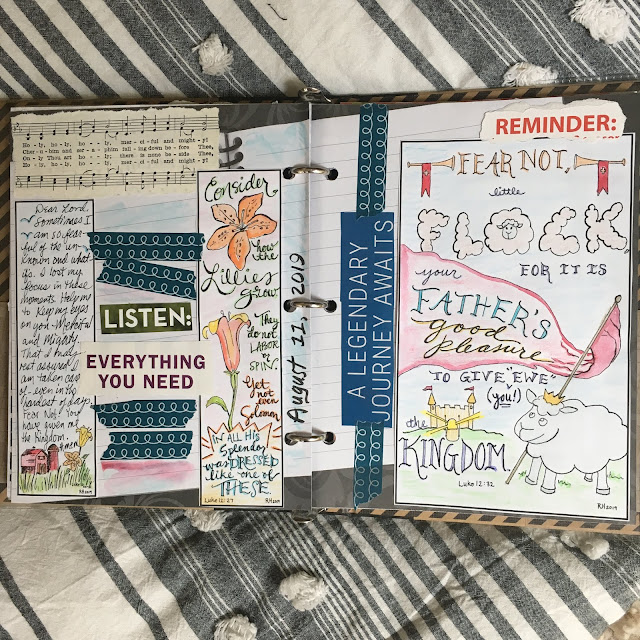 Ho - ly, ho - ly, ho - ly, mer - ci - ful and might - y!
Cher - u - bim and ser - a - phim fall-ing down before Thee,
On-ly Thou art ho - ly; there is none be-side Thee,
Ho - ly, ho - ly, ho - ly, mer - ci - ful and might - y!
Dear Lord
Sometimes I
am so fear-
ful of the un-
known and what
if's. I lost my
focus in these
moments. Help me
to keep my eyes
on you - Merciful
and Mighty.
That I
rest assured I
am taken care
of - even in the
hardest of days.
Fear Not! You
have given me
the Kingdom.
Amen
RH2019
LISTEN:
EVERYTHING
YOU NEED
Consider
how
the
Lillies
grow.
They
do not
LABOR
or
SPIN.
Yet
not
even
Solomon
IN ALL His
Splendor
was DRESSED
like one of
THESE.
Luke 12:27
RH2019
August 11, 2019
A LEGENDARY
JOURNEY AWAITS
REMINDER:
FEAR NOT,
little
FLOCK,
your
FOR IT IS
FATHER'S
good
pleasure
TO GIVE "EWE"
(you!)
the
KINGDOM
Luke 12:32
RH2019